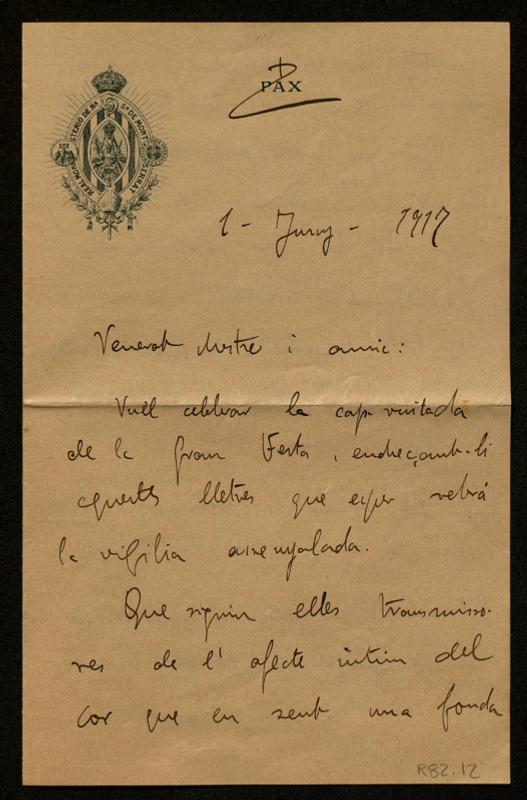 PAX
REAL MONASTERIO DE Nª Sª DE MONTSERRAT
1 - Juny - 1917
Venerat Mestre i amic:
Vull celebrar la cap vuitada
de la gran Festa, endreçant-li
aquestes lletres que esper rebrá
la vigilia assenyalada.
Que siguin elles transmisso-
res de l'afecte íntim del
cor que en sent una fonda
R82.12